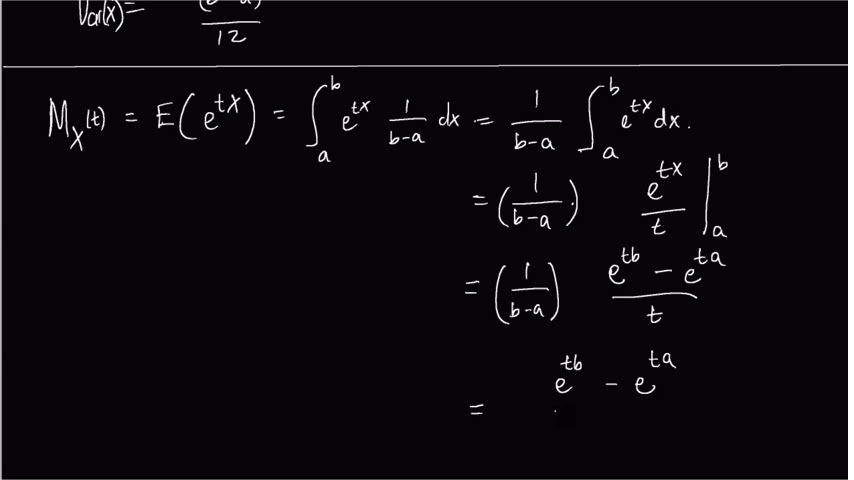 Var(x)= (b-a)² / 12
M_X(t) = E(e^{tX}) = ∫_a^b e^{tx} 1/(b-a) dx = 1/(b-a) ∫_a^b e^{tx} dx.
= (1/(b-a)) · e^{tx}/t |_a^b
= (1/(b-a)) (e^{tb} - e^{ta})/t
= e^{tb} - e^{ta}